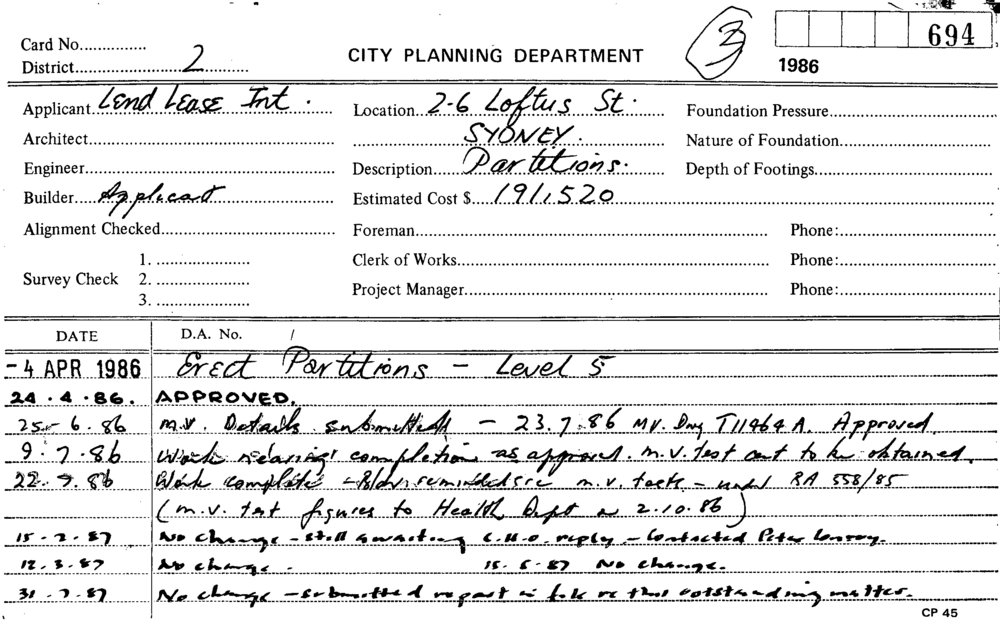 Card No............... 
District..........2..........
CITY PLANNING DEPARTMENT
3
694
1986
Applicant Lend Lease Int.
Location 2-6 Loftus St.
Foundation Pressure
Architect
SYDNEY.
Nature of Foundation
Engineer
Description Partitions.
Depth of Footings
Builder Applicant
Estimated Cost $ 191,520
Alignment Checked
Foreman
Phone:
Survey Check
1.
2.
3.
Clerk of Works
Phone:
Project Manager
Phone:
DATE
D.A. No. /
-4 APR 1986 Erect Partitions - Level 5
24.4.86. APPROVED.
25-6.86 m.v. Details submitted - 23.7.86 MV. Drg T11464A. Approved.
9.7.86 Work nearing completion as approved. m.v. test cert to be obtained.
22.9.86 Work complete - reminded re m.v. tests - under BA 558/85
(m.v. test figures to Health Dept on 2.10.86)
15.2.87 No change - still awaiting C.H.O. reply - Contacted Peter Conroy.
12.3.87 No change. 15.5.87 No change.
31.7.87 No change - submitted report in file re this outstanding matter.
CP 45